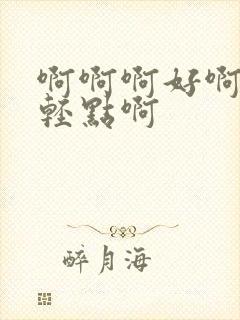 啊啊啊好啊
輕點啊
醉月海